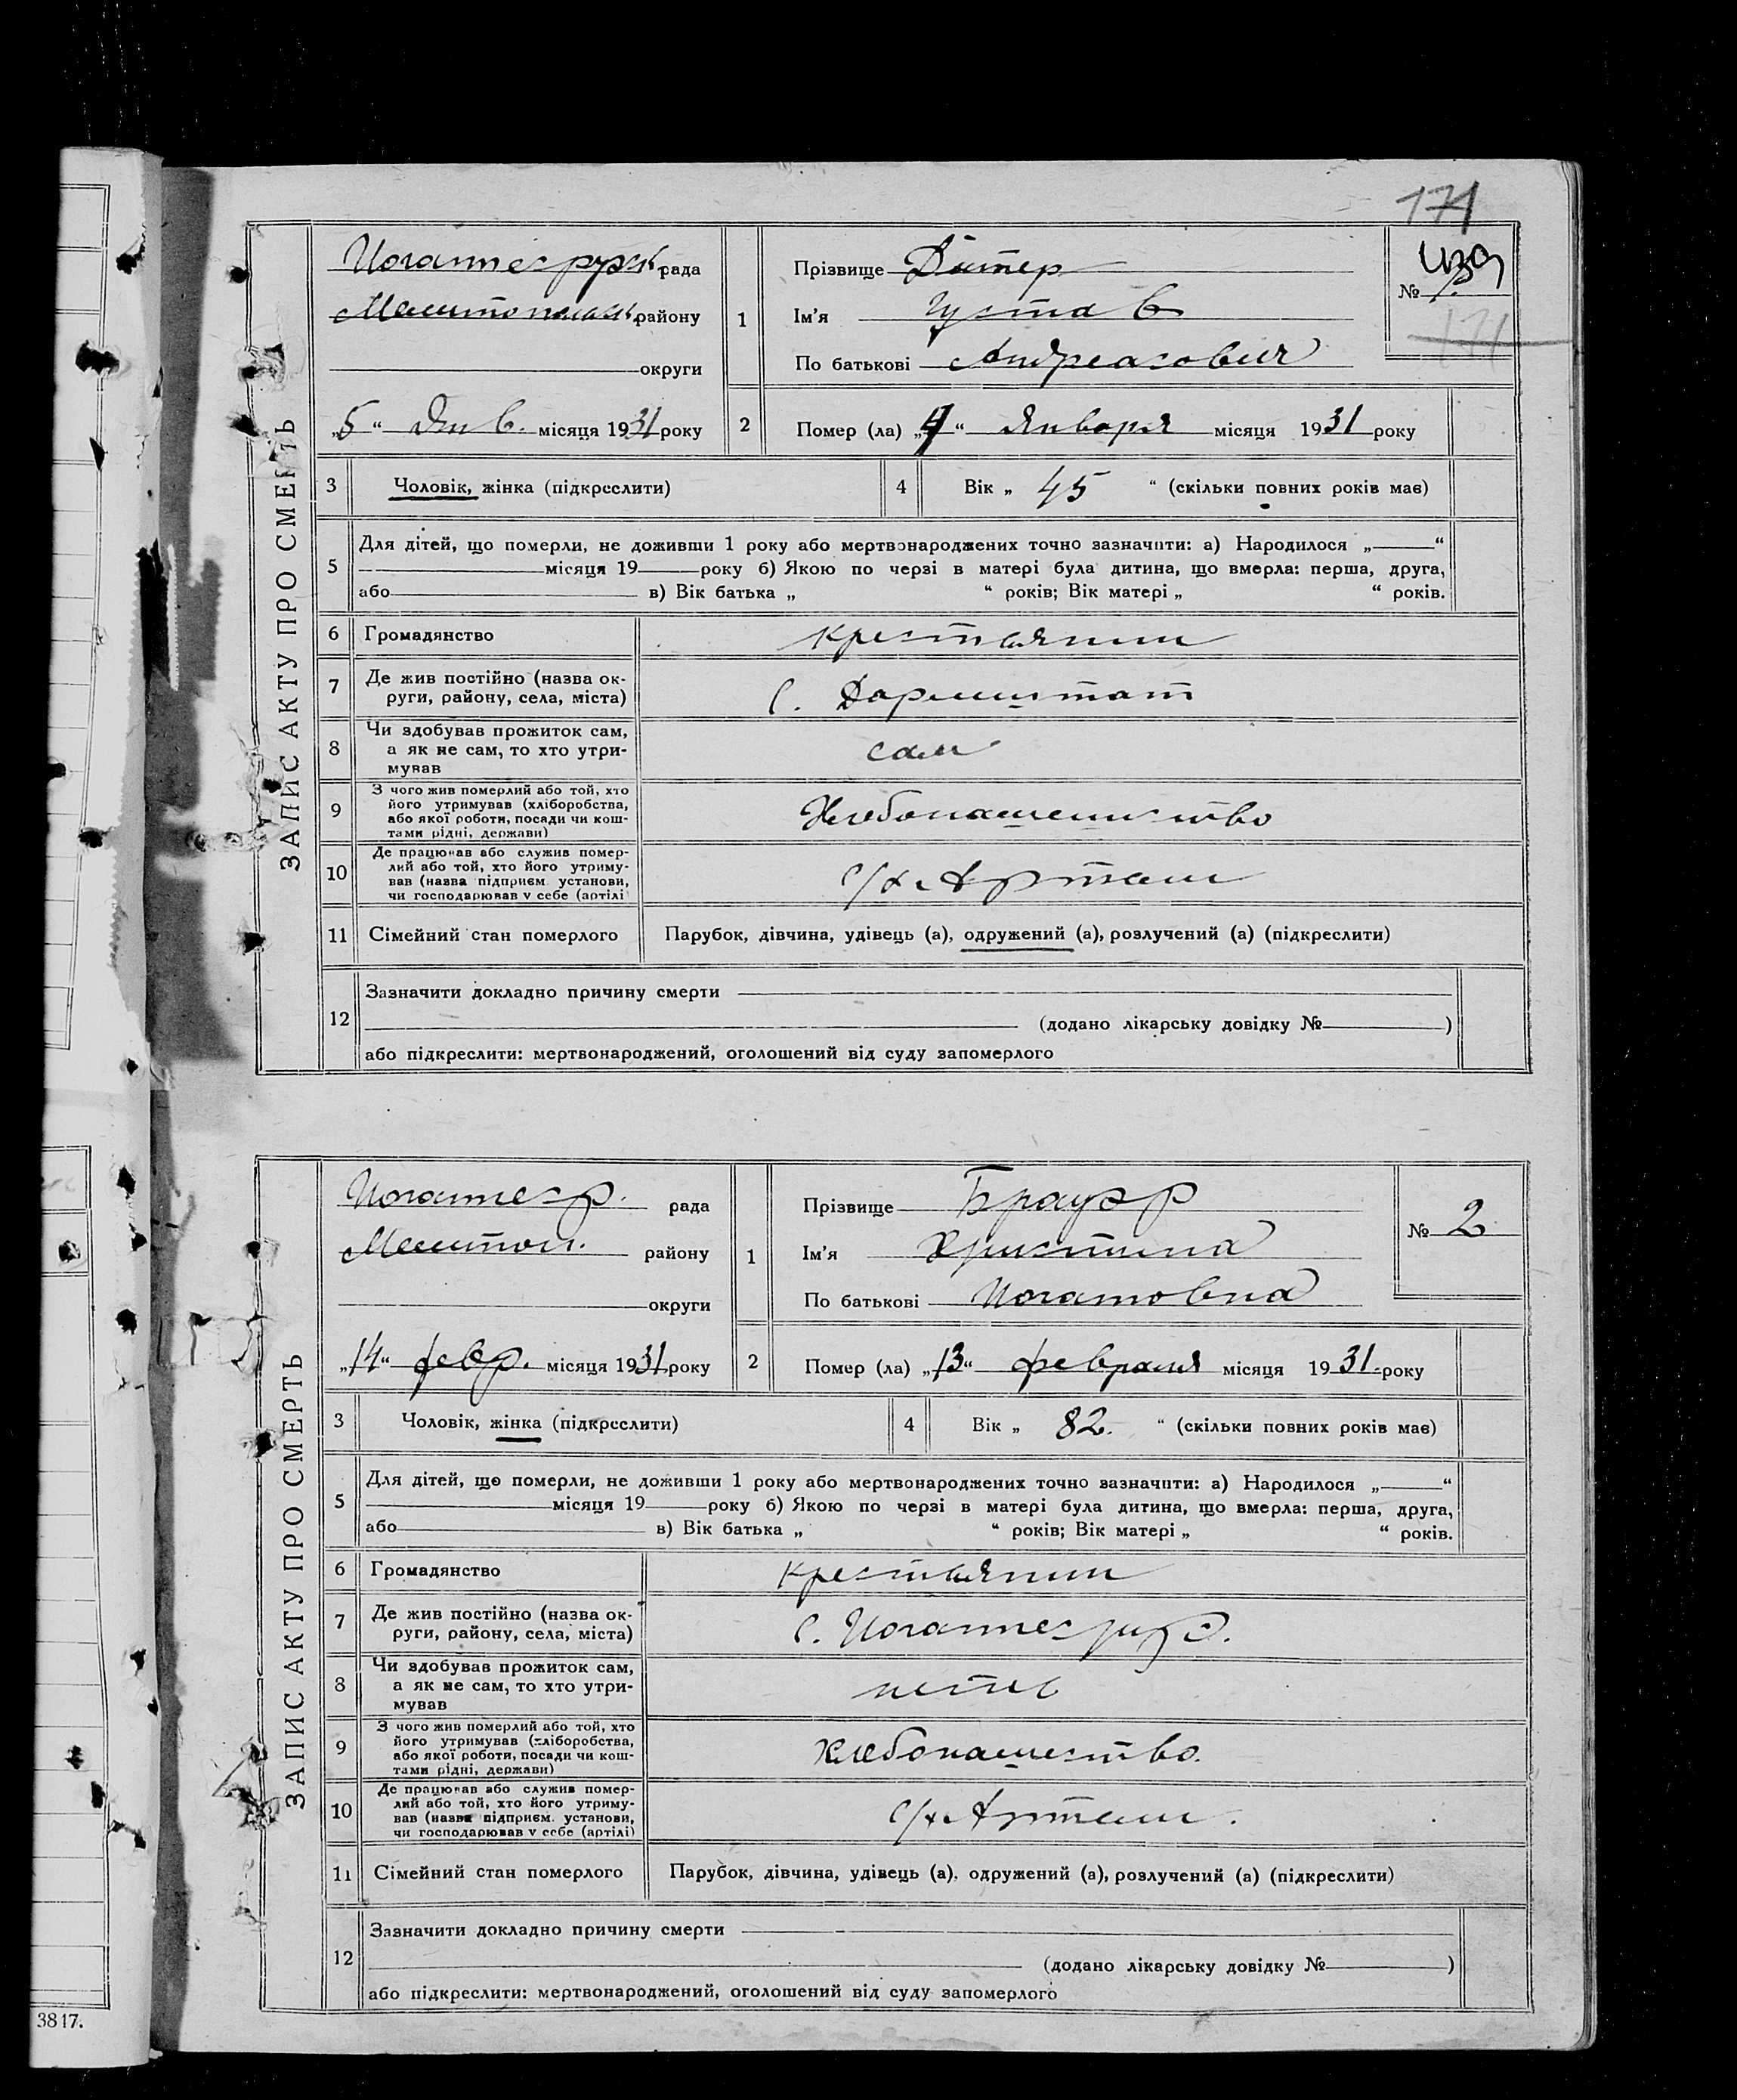 171
Иоганнесрурськ рада
Мелитопольськ району
округи
„5“ Янв. місяця 1931 року
1
Прізвище Дитер
Ім’я Густав
По батькові Андреасович
№
171
2
Помер (ла) „4“ Января місяця 1931 року
ЗАПИС АКТУ ПРО СМЕРТЬ
3
Чоловік, жінка (підкреслити)
4
Вік „ 45 “ (скільки повних років має)
5
Для дітей, що померли, не доживши 1 року або мертвонароджених точно зазначити: а) Народилося „ “
місяця 19 року б) Якою по черзі в матері була дитина, що вмерла: перша, друга,
або в) Вік батька „ “ років; Вік матері „ “ років.
6
Громадянство
крестьянин
7
Де жив постійно (назва ок-
руги, району, села, міста)
с. Дармштат
8
Чи здобував прожиток сам,
а як не сам, то хто утри-
мував
сам
9
З чого жив померлий або той, хто
його утримував (хліборобства,
або якої роботи, посади чи кош-
тами рідні, держави)
Хлебопашенство
10
Де працював або служив помер-
лий або той, хто його утриму-
вав (назва підприєм. установи,
чи господарював у себе (артілі)
с/х Артели
11
Сімейний стан померлого
Парубок, дівчина, удівець (а), одружений (а), розлучений (а) (підкреслити)
12
Зазначити докладно причину смерти
(додано лікарську довідку № )
або підкреслити: мертвонароджений, оголошений від суду запомерлого
Иоганнеср. рада
Мелитоп. району
округи
„14“ февр. місяця 1931 року
1
Прізвище Брауэр
Ім’я Христина
По батькові Иогановна
№ 2
2
Помер (ла) „13“ февраля місяця 1931 року
ЗАПИС АКТУ ПРО СМЕРТЬ
3
Чоловік, жінка (підкреслити)
4
Вік „ 82. “ (скільки повних років має)
5
Для дітей, що померли, не доживши 1 року або мертвонароджених точно зазначити: а) Народилося „ “
місяця 19 року б) Якою по черзі в матері була дитина, що вмерла: перша, друга,
або в) Вік батька „ “ років; Вік матері „ “ років.
6
Громадянство
крестьянин
7
Де жив постійно (назва ок-
руги, району, села, міста)
с.
8
Чи здобував прожиток сам,
а як не сам, то хто утри-
мував
9
З чого жив померлий або той, хто
його утримував (хліборобства,
або якої роботи, посади чи кош-
тами рідні, держави)
Хлебопашество.
10
Де працював або служив помер-
лий або той, хто його утриму-
вав (назва підприєм. установи,
чи господарював у себе (артілі)
с/х Артели.
11
Сімейний стан померлого
Парубок, дівчина, удівець (а), одружений (а), розлучений (а) (підкреслити)
12
Зазначити докладно причину смерти
(додано лікарську довідку № )
або підкреслити: мертвонароджений, оголошений від суду запомерлого
3817.